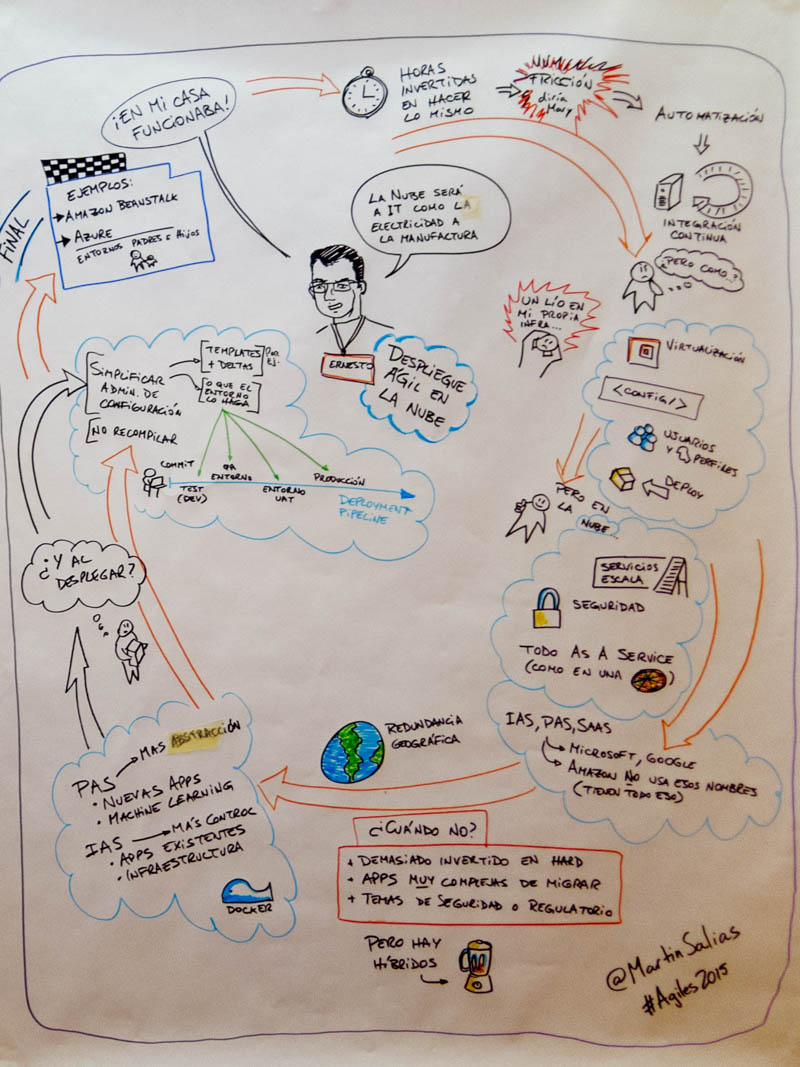 ¡EN MI CASA
FUNCIONABA!
HORAS
INVERTIDAS
EN HACER
LO MISMO
FRICCIÓN
diría
Mary
AUTOMATIZACIÓN
INTEGRACIÓN
CONTINUA
¿PERO COMO?
LA NUBE SERÁ
A IT COMO LA
ELECTRICIDAD A
LA MANUFACTURA
ERNESTO
DESPLIEGUE
ÁGIL EN
LA NUBE
UN LÍO EN
MI PROPIA
INFRA...
VIRTUALIZACIÓN
<CONFIG/>
USUARIOS
Y PERFILES
DEPLOY
PERO EN
LA NUBE...
SERVICIOS
ESCALA
SEGURIDAD
TODO AS A SERVICE
(COMO EN UNA )
IAS, PAS, SAAS
MICROSOFT, GOOGLE
AMAZON NO USA ESOS NOMBRES
(TIENEN TODO ESO)
REDUNDANCIA
GEOGRÁFICA
¿CUÁNDO NO?
+ DEMASIADO INVERTIDO EN HARD
+ APPS MUY COMPLEJAS DE MIGRAR
+ TEMAS DE SEGURIDAD O REGULATORIO
PERO HAY
HÍBRIDOS
PAS
MAS ABSTRACCIÓN
• NUEVAS APPS
• MACHINE LEARNING
IAS
MÁS CONTROL
• APPS EXISTENTES
• INFRAESTRUCTURA
DOCKER
¿Y AL
DESPLEGAR?
SIMPLIFICAR
ADMIN. DE
CONFIGURACIÓN
NO RECOMPILAR
TEMPLATES
+ DELTAS
POR
EJ.
O QUE EL
ENTORNO
LO HAGA
COMMIT
TEST
(DEV)
QA
ENTORNO
ENTORNO
UAT
PRODUCCIÓN
DEPLOYMENT
PIPELINE
FINAL
EJEMPLOS:
AMAZON BEANSTALK
AZURE
ENTORNOS PADRES E HIJOS
@MartinSalias
#Agiles2015